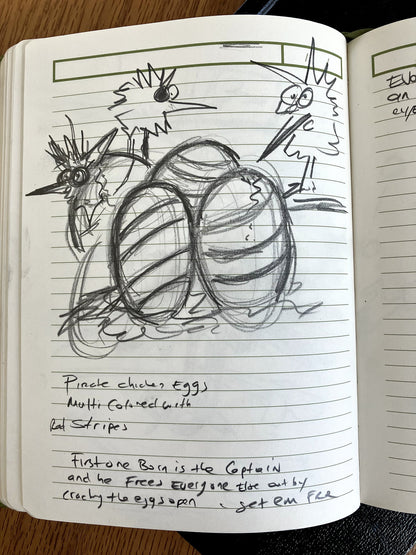 Pirate chicken Eggs
Multi Colored with
Red Stripes
First one Born is the Captain
and he Frees Everyone Else out by
cracking the eggs open . Set em Free
an